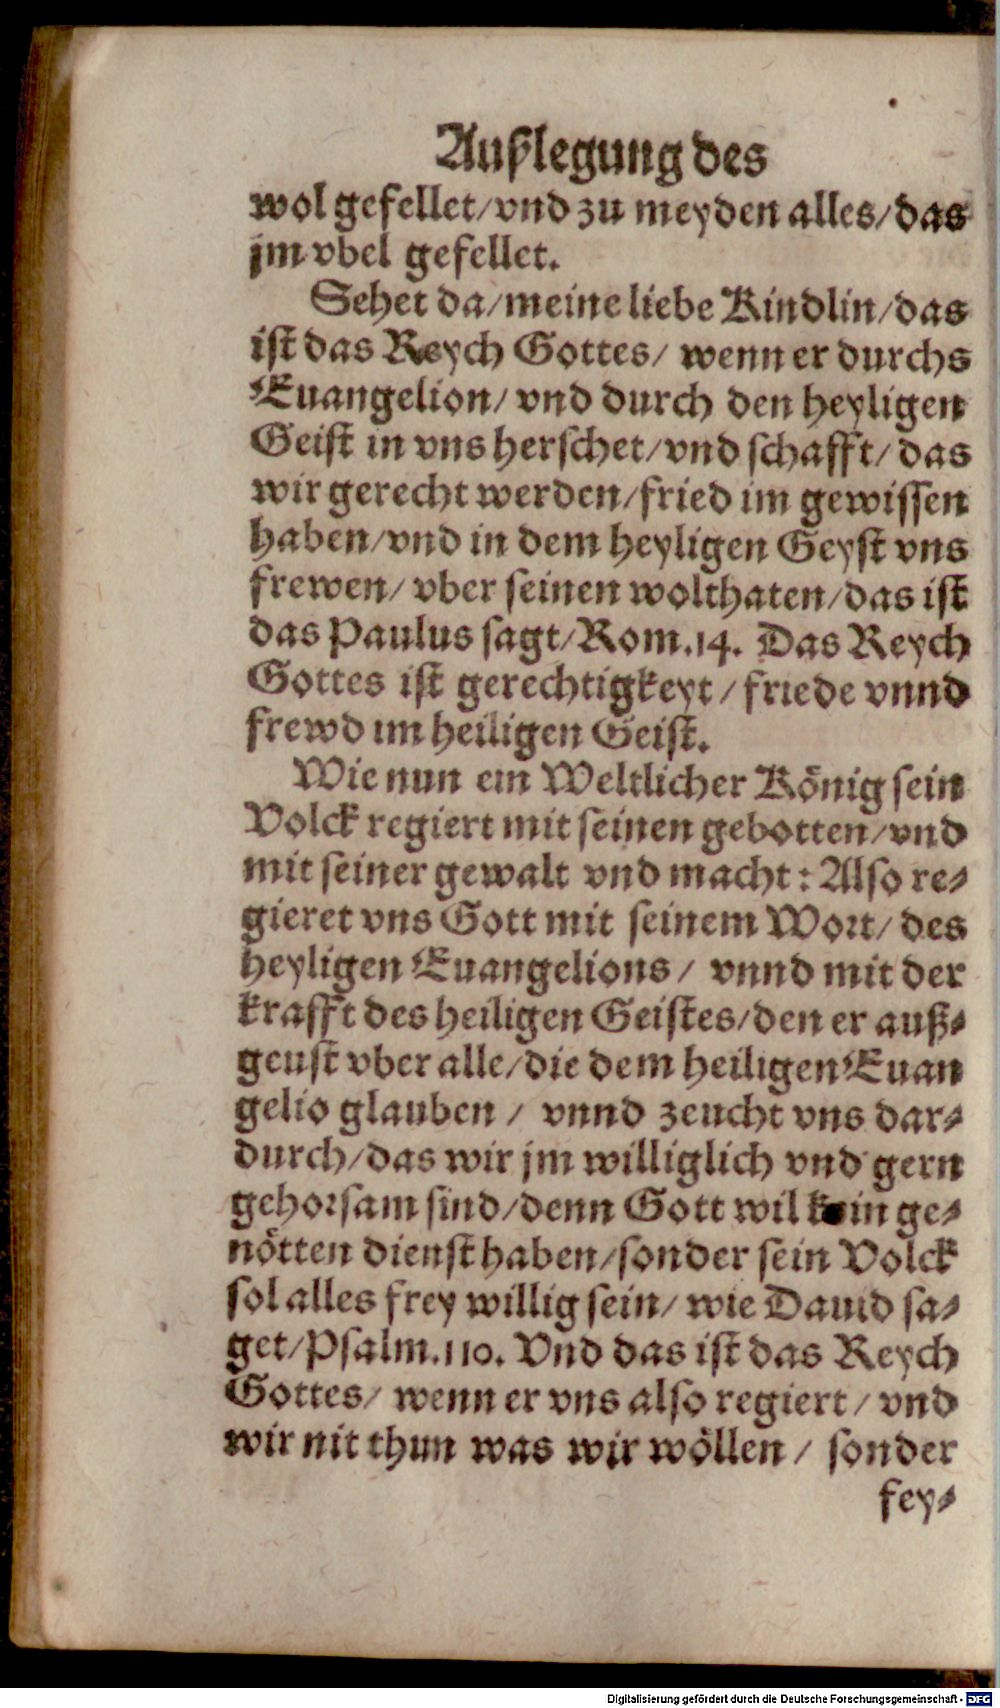 Außlegung des
wol gefellet/vnd zu meyden alles/das
jm vbel gefellet.
Sehet da/meine liebe Kindlin/das
ist das Reych Gottes/ wenn er durchs
Euangelion/ vnd durch den heyligen
Geist in vns herschet/vnd schafft/das
wir gerecht werden/fried im gewissen
haben/vnd in dem heyligen Geyst vns
frewen/ vber seinen wolthaten/das ist
das Paulus sagt/Rom.14. Das Reych
Gottes ist gerechtigkeyt/friede vnnd
frewd im heiligen Geist.
Wie nun ein Weltlicher König sein
Volck regiert mit seinen gebotten/vnd
mit seiner gewalt vnd macht: Also re-
gieret vns Gott mit seinem Wort/ des
heyligen Euangelions/ vnnd mit der
krafft des heiligen Geistes/den er auß-
geust vber alle/die dem heiligen Euan
gelio glauben/ vnnd zeucht vns dar-
durch/das wir jm williglich vnd gern
gehorsam sind/denn Gott wil kein ge-
nötten dienst haben/sonder sein Volck
sol alles frey willig sein/ wie Dauid sa-
get/Psalm.110. Vnd das ist das Reych
Gottes/ wenn er vns also regiert/ vnd
wir nit thun was wir wöllen/ sonder
sey-
Digitalisierung gefördert durch die Deutsche Forschungsgemeinschaft - DFG